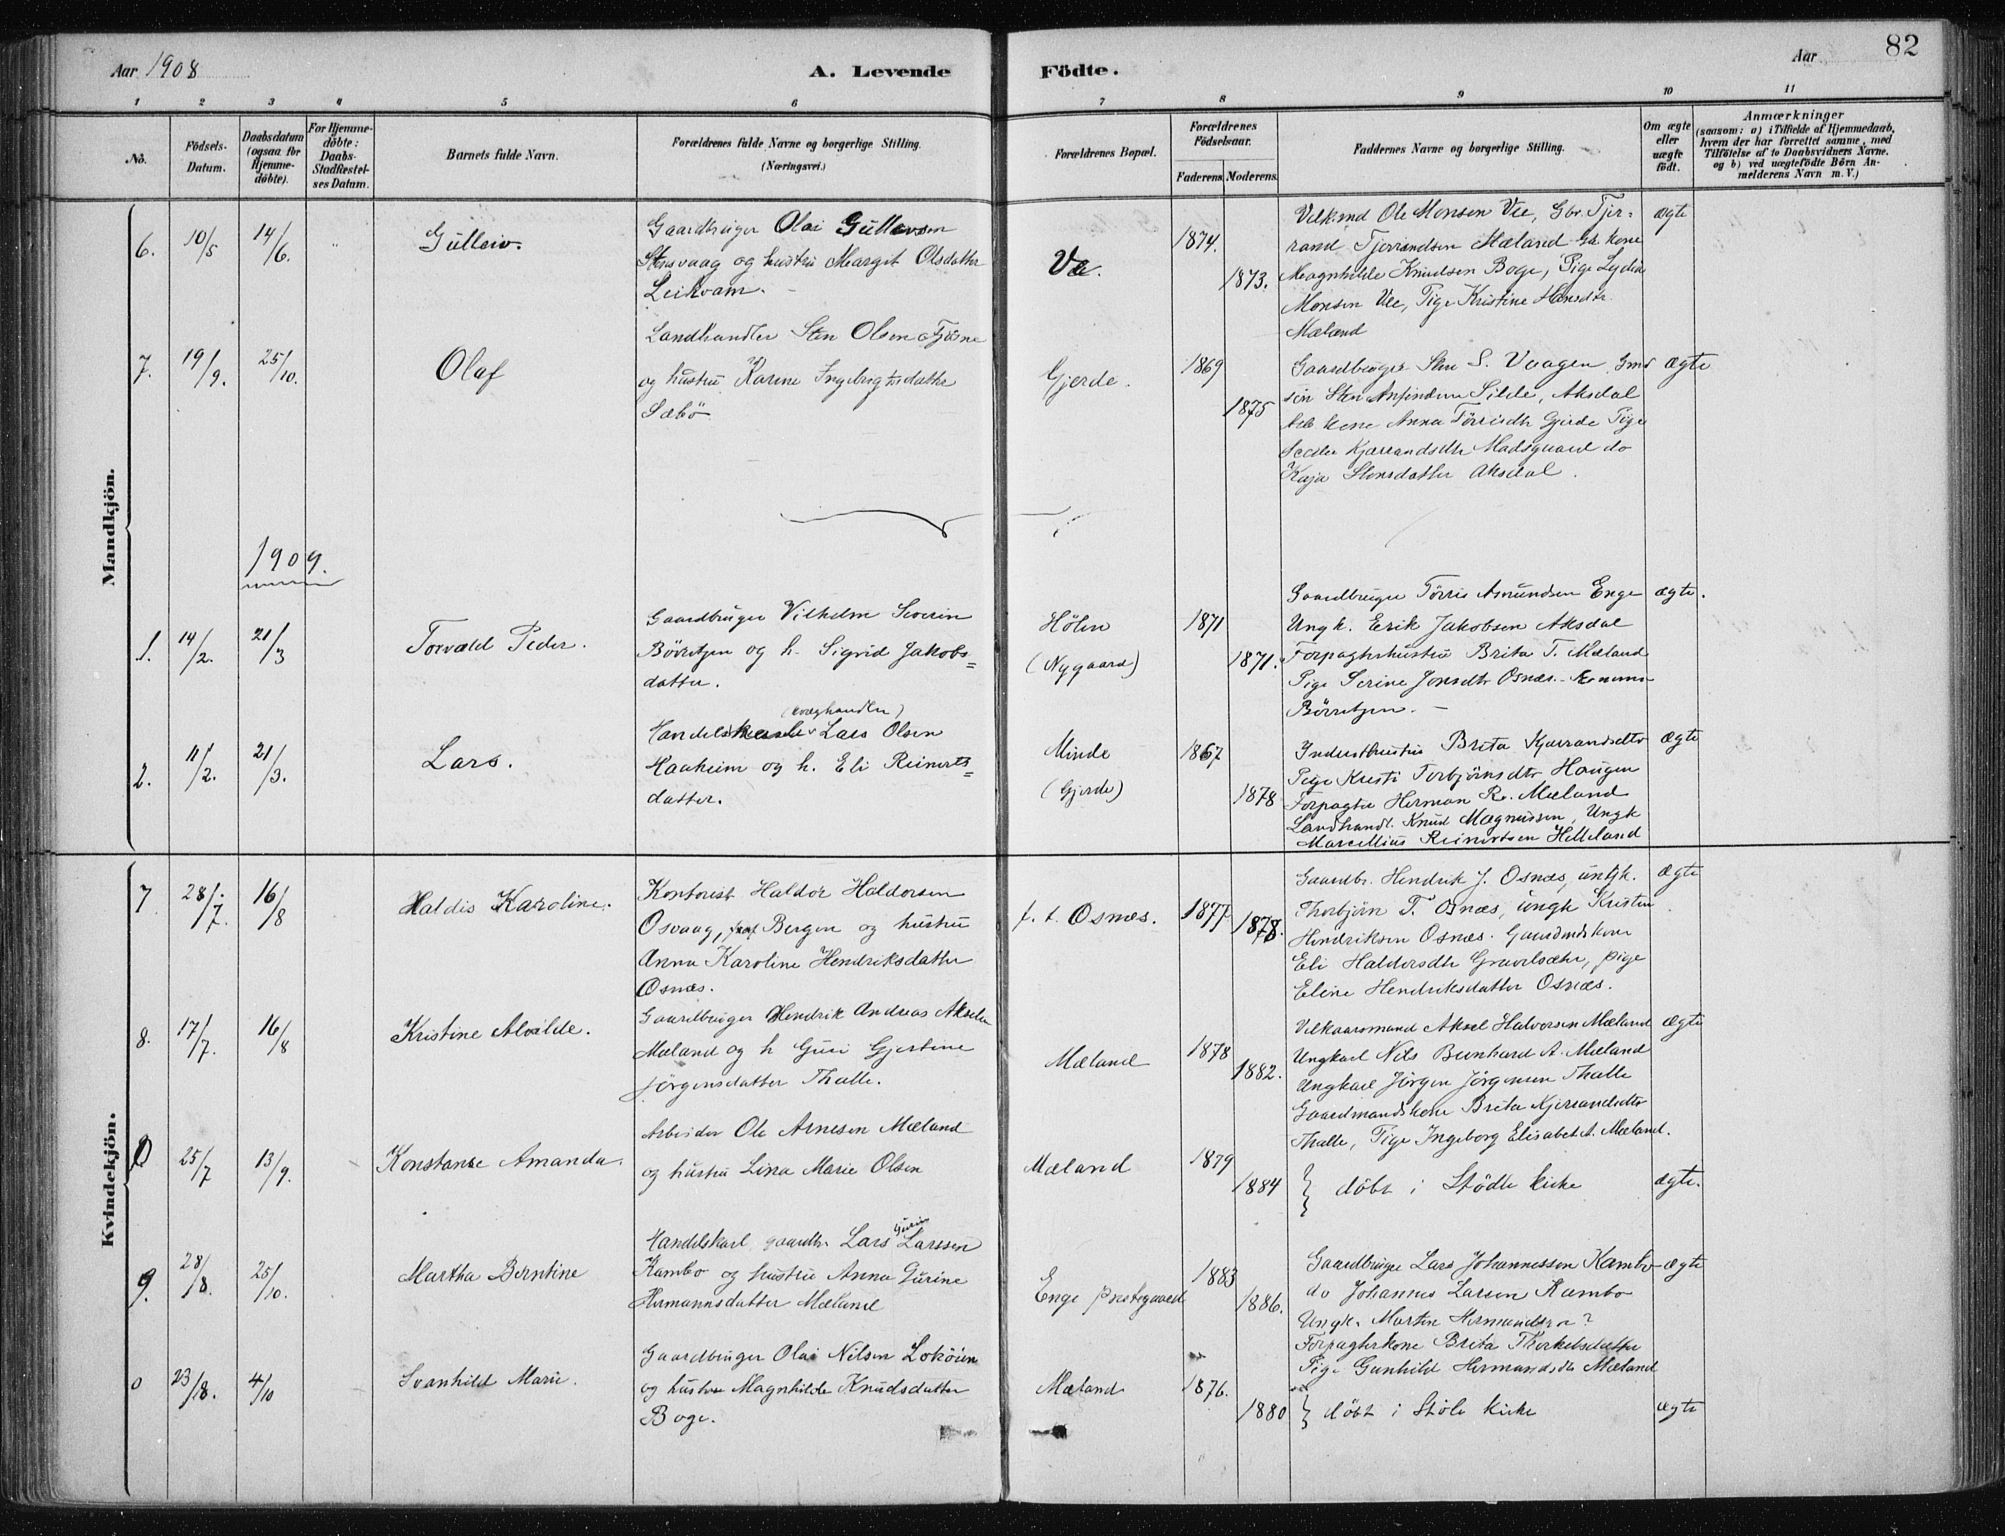 Aar 1908
A. Levende Födte.
Aar
82
1 2 3 4 5 6 7 8 9 10 11
No.
Födsels-Datum.
Daabsdatum (ogsaa for Hjemme-döbte).
For Hjemme-döbte: Daabs-Stadfæstel-ses Datum.
Barnets fulde Navn.
Forældrenes fulde Navne og borgerlige Stilling. (Næringsvei.)
Forældrenes Bopæl.
Forældrenes Födselsaar.
Faderens. Moderens.
Faddernes Navne og borgerlige Stilling.
Om ægte eller uægte födt.
Anmærkninger
(saasom: a) i Tilfælde af Hjemmedaab, hvem der har forrettet samme, med Tilföielse af to Daabsvidners Navne. og b) ved uægtefödte Börn An-melderens Navn m. V.)
Mandkjön.
6. 10/5 14/6. " Gulleiv.
Gaardbruger Olai Gullevsen
Stensvaag og hustru Margit Olsdatter
Leikvam.
Væ.
1874.
1873.
Velk.md Ole Monsen Vee, Gbr. Tjer-
rand Tjerrandsen Mæland Gk kone
Magnhilde Knudsen Boge, Pige Lydia
Monsen Vee, Pige Kristine Hansdtr.
Mæland
ægte
7. 19/9. 25/10. Olaf
Landhandler Sten Olsen Fjösne
og hustru Karine Ingebrigtsdatter
Sæbö
Gjerde.
1869
1875
Gaardbruger Sten S. Vaagen, Gmd
sön Sten Silde, Aksdal
kone Anna Törrisdtr Gjerde Pige
Kjærrandsdtr Madsgaard do
Kaja Stensdatter Aksdal.
ægte
1909.
1. 14/2. 21/3 Torvald Peder.
Gaardbruger Vilhelm Severin
Börretzen og h. Sigrid Jakobs=
datter.
Hölen
(Nygaard)
1871
1871.
Gaardbruger Törris Asmundsen Enge
Ungk. Erik Jakobsen Aksdal
Forpagterhustru Brita T. Mæland
Pige Serine Jonsdtr Osnæs.
Börretzen.
ægte.
2. 11/2. 21/3. Lars.
(kvæghandler)
Handelskarl Lars Olsen
Haaheim og h. Eli Reinerts=
datter.
Minde
(Gjerde)
1867
1878
Inderst hustru Brita Kjærrandsdtr
Pige Kristi Torbjörnsdtr Haugen
Forpagter Herman R. Mæland
Landhandl. Knud Magnussen, Ungk
Marcellius Reinertsen Helleland
ægte
Kvindekjön.
7 28/7. 16/8 Haldis Karoline.
Kontorist Haldor Haldorsen
Osvaag, fraf Bergen og hustru
Anna Karoline Hendriksdatter
Osnæs.
f. t. Osnæs.
1877
1878.
Gaardbr. Hendrik J. Osnæs, ungk.
Thorbjörn T. Osnæs, ungk Kristen
Hendriksen Osnæs. Gaardmdskone
Eli Haldorsdtr Gravelsæter, pige
Eline Hendriksdatter Osnæs.
ægte
8. 17/7. 16/8 Kristine Alvilde.
Gaardbruger Hendrik Andreas Akselsen
Mæland og h Guri Gjertine
Jörgensdatter Thalle.
Mæland
1878
1882.
Velkaarsmand Aksel Halvorsen Mæland
Ungkarl Nils Bernhard A. Mæland
Ungkarl Jörgen Jörgensen Thalle
Gaardmandskone Brita Kjerrandsdtr
Thalle, Pige Ingeborg Elisabet A. Mæland.
ægte
25/7 13/9. Konstanse Amanda.
Arbeider Ole Arnesen Mæland
og hustru Lina Marie Olsen
Mæland
1879
1884
döbt i Stödle kirke
ægte.
9. 28/8. 25/10. Martha Berntine
Handelskarl gaardbr. Lars Larssen
Kambo og hustru Anna Gurine
Hermannsdatter Mæland
Enge prestegaard
1883
1886.
Gaardbruger Lars Johannessen Kambo
do Johannes Larsen Kambo
Ungk. Martin Hermandsen ?
Forpagterkone Brita Thorkelsdatter
Pige Gunhild Hermandsdtr Mæland
ægte
0 23/8. 4/10 Svanhild Marie.
Gaardbruger Olai Nilsen Loköien
og hustru Magnhilde Knudsdatter
Boge.
Mæland
1876.
1880
döbt i Stöle kirke
ægte